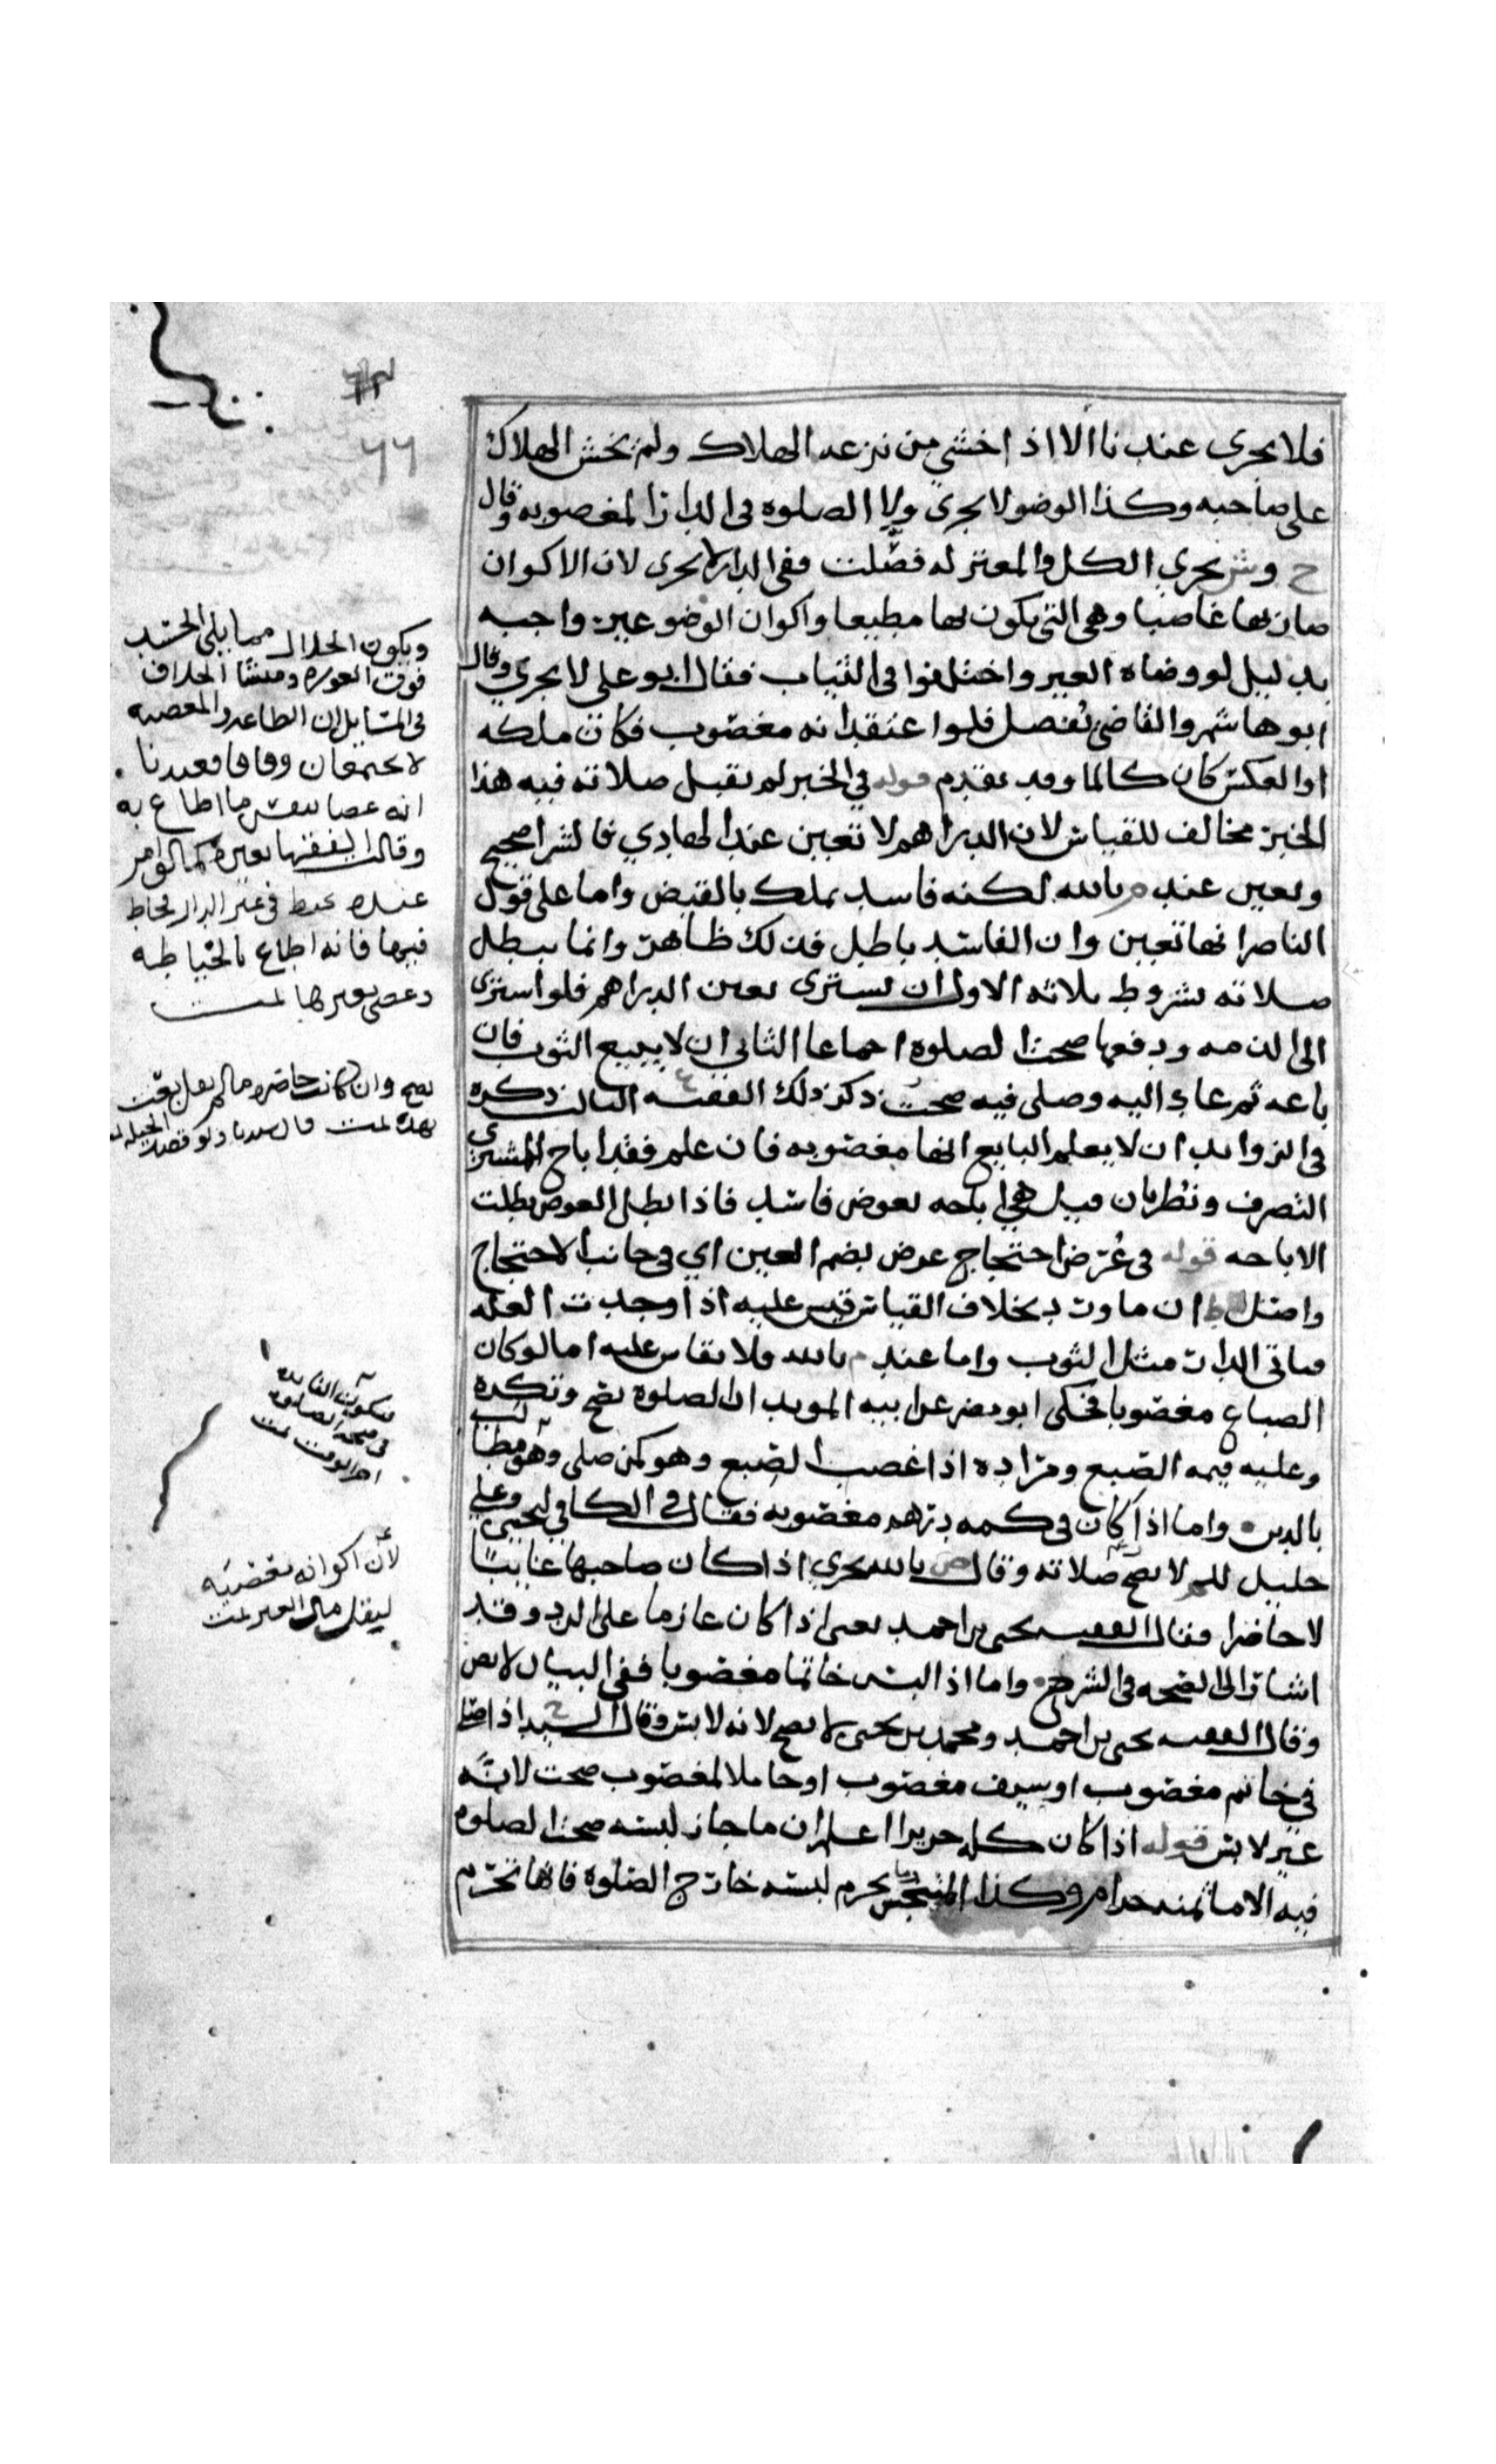 فلا يجرى عندنا الا اذا خشي من نزعه الهلاك ولم يخش الهلاك
على صاحبه وكذا الوضو لا يجرى ولا الصلوه فى الدار المغصوبه وقال
ح وش يجري الكل والمعتزله فصّلت ففى الدار لا يجرى لان الاكوان
صار بها غاصبا وهى التى يكون بها مطيعا واكوان الوضو غير واجبه
بدليل لو وضاه الغير واختلفوا فى الثياب فقال ابو على لا يجري وقال
ابو هاشم والقاضى نُفصل فلو اعتقد انه مغصوب فكان ملكه
او العكس كان كالما وقد تقدم قوله في الخبر لم تقبل صلاته فيه هذا
الخبر مخالف للقياس لان الدراهم لا تتعين عند الهادي فالشرا صحيح
وتعين عند م بالله لكنه فاسد يملك بالقبض واما على قول
الناصر انها تعين وان الفاسد باطل فذلك ظاهر وانما يبطل
صلاته بشروط ثلاثه الاول ان يشترى بعين الدراهم فلو اشترى
الى الذمه ودفعها صحت الصلوة اجماعا الثاني ان لا يبيع الثوب فان
باعه ثم عاد اليه وصلى فيه صحت ذكر ذلك الفقيه ع الثالث ذكره
فى الزوايد ان لا يعلم البايع انها مغصوبه فان علم فقد اباح للمشتري
التصرف ونظر بان قيل هي اباحه بعوض فاسد فاذا بطل العوض بطلت
الاباحه قوله فى عُرض احتجاج عرض بضم العين اي فى جانب الاحتجاج
واصل ط ان ما ورد بخلاف القياس قيس عليه اذا وجدت العله
فياتى الدار مثل الثوب واما عند م بالله فلا يقاس عليه اما لو كان
الصباغ مغصوبا فحكى ابو مضر عن ابيه المويد ان الصلوة تصح وتكره
وعليه قيمه الصبغ ومراده اذا غصب الصبغ وهو كمن صلى وهو مطالب
بالدين واما اذا كان فى كمه درهم مغصوبه فقال فى الكافي ليحيى وعلي
خليل للم لا تصح صلاته وقال ص بالله يجري اذا كان صاحبها غايبًا
لا حاضرا فقال الفقيه يحيى بن احمد يعنى اذا كان عازما على الرد وقد
اشار الى الصحه فى الشرح واما اذا لبس خاتما مغصوبا ففى البيان لا يصح
وقال الفقيه يحيى بن احمد ومحمد بن يحيى لا يصح لانه لابس وقال السيد ح اذا صلى
فى خاتم مغصوب او سيف مغصوب او حاملا لمغصوب صحت لانّه
غير لابس قوله اذا كان كله حريرا اعلم ان ما جاز لبسه صحت الصلوه
فيه الا ما ثمنه حرام وكذا المتنجس ما يحرم لبسه خارج الصلوة فانها تحرم
٦٦
ويكون الخلال مما يلى الجسد
فوق العوره ومنشا الخلاف
فى المسايل ان الطاعه والمعصيه
لا يجتمعان وفاقا فعندنا
انه عصا بنفس ما اطاع به
وقالت الفقها بغيره كما لو امر
عبده يخيط فى غير الدار فخاط
فيها فانه اطاع بالخياطه
وعصى بغيرها تمت
تصح وان كانت حاضره ما لم يقل بعت
بهذه تمت قال سيدنا ولو قصد الحيله تمت
فتكون الفايده
فى صحه الصلوه
اخر الوقت تمت
لأن اكوانه مغصبيه
ليقل مال الغير تمت